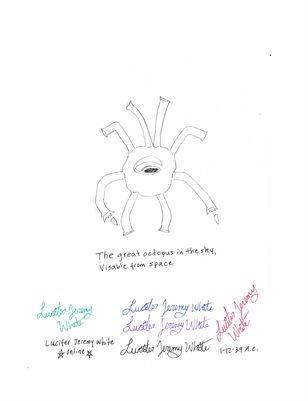 The great octopus in the sky,
Visable from space
Lucifer Jeremy
White
Lucifer Jeremy White
Online
Lucifer Jeremy White
Lucifer Jeremy White
Lucifer Jeremy White
Lucifer Jeremy
White
1-12-39 A.C.